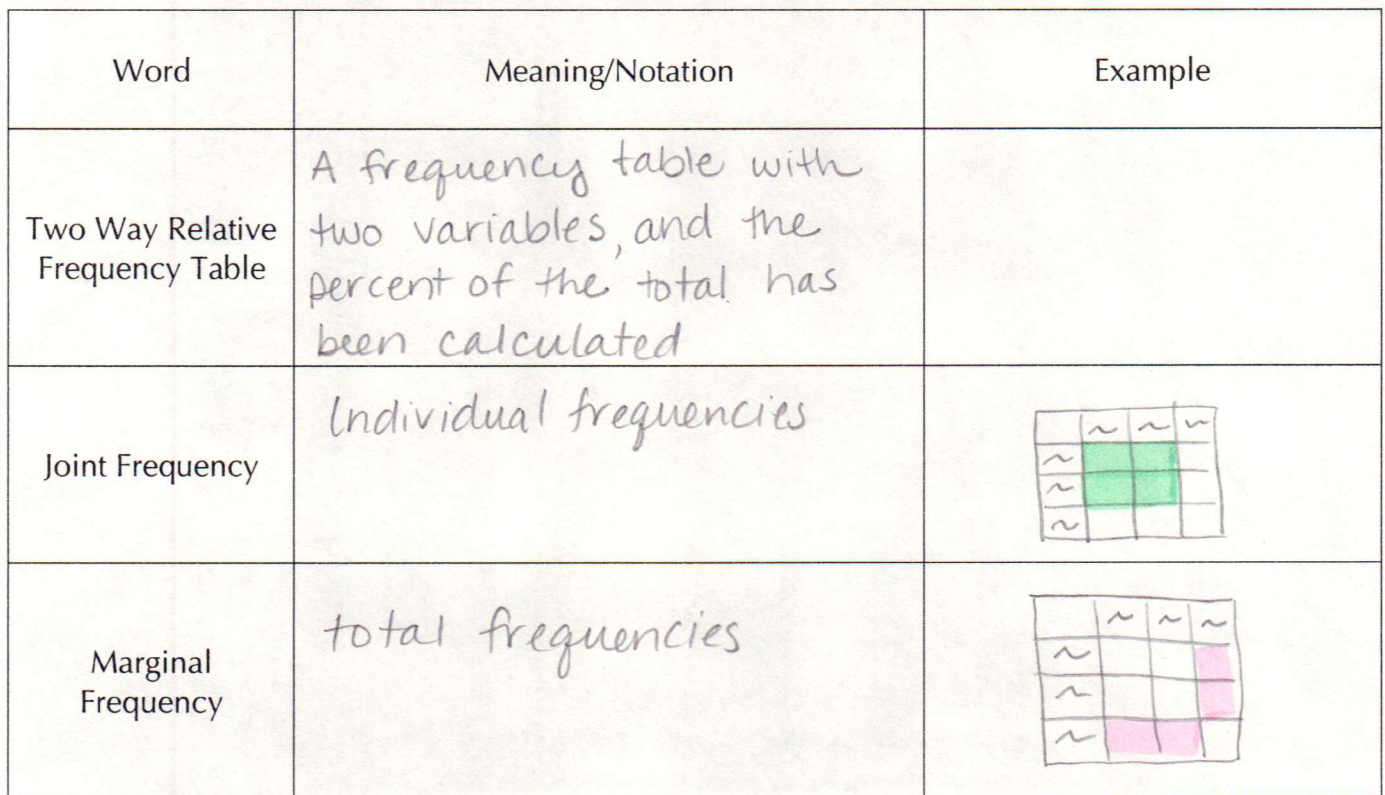 Word
Meaning/Notation
Example
Two Way Relative
Frequency Table
A frequency table with
two variables, and the
percent of the total has
been calculated
Joint Frequency
Individual frequencies
Marginal
Frequency
total frequencies